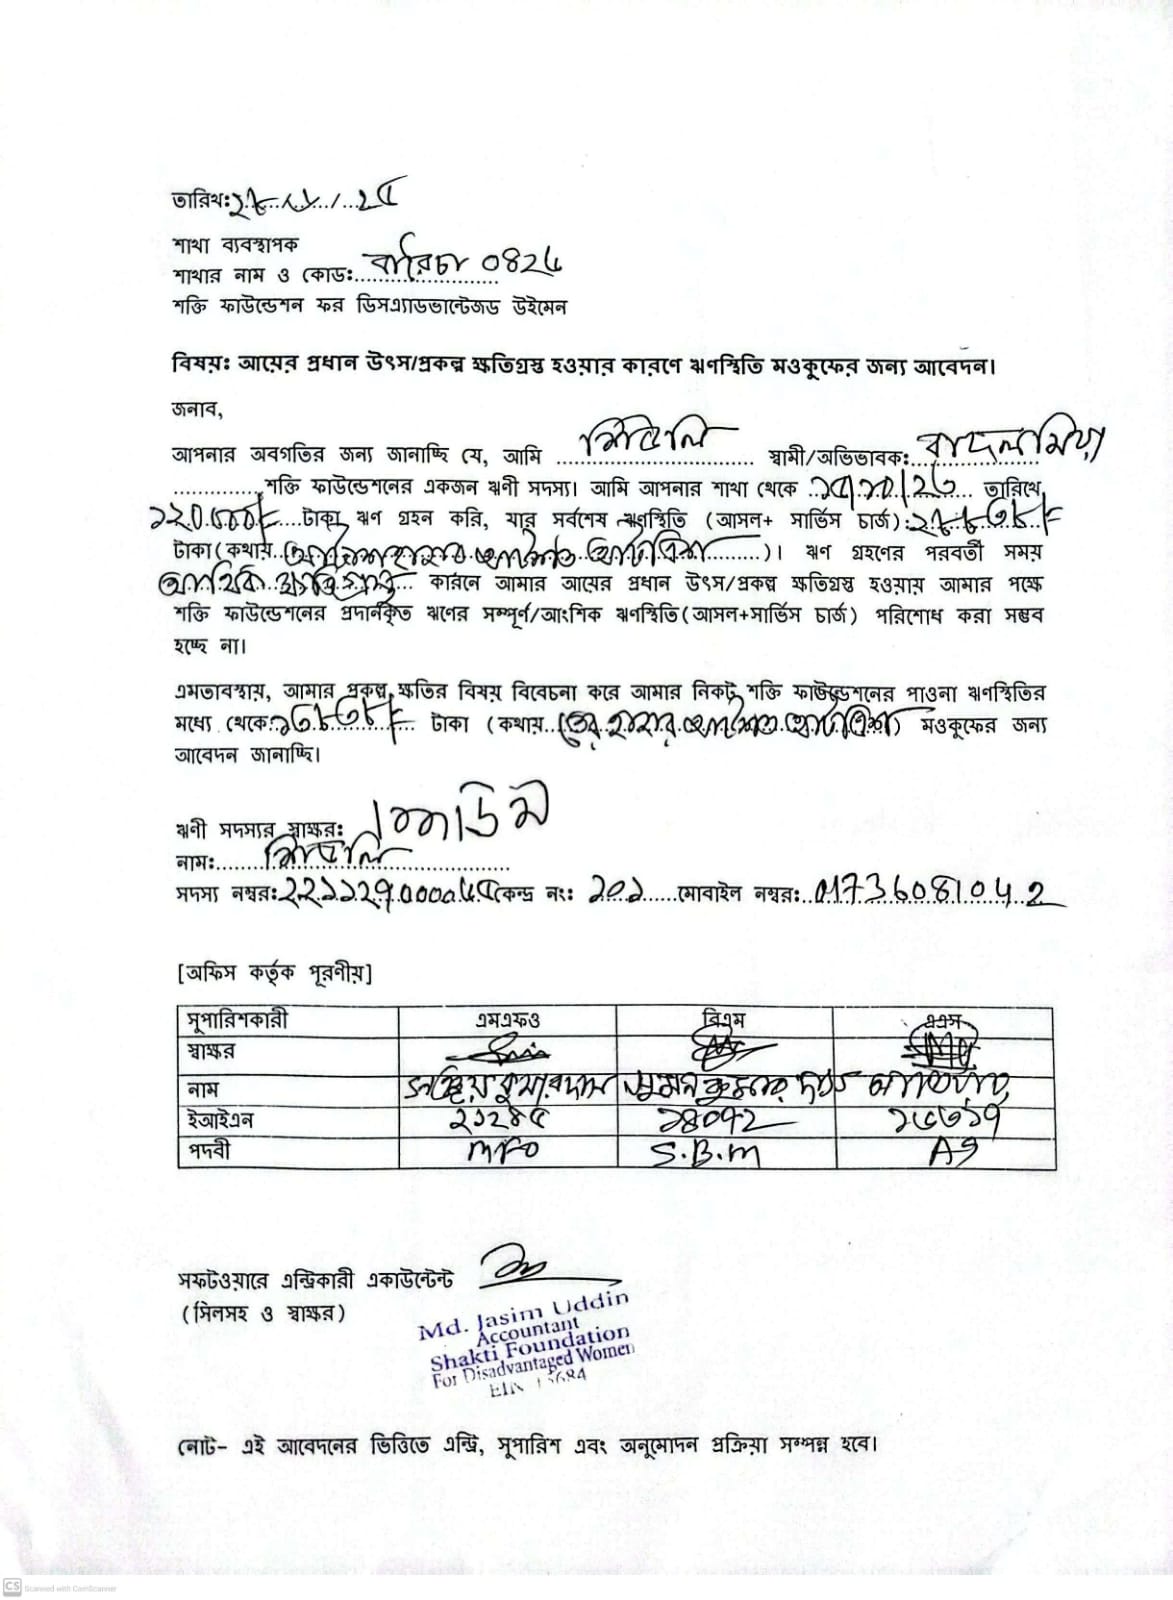 তারিখ:
শাখা ব্যবস্থাপক
শাখার নাম ও কোড: বারৈচা 0824
শক্তি ফাউন্ডেশন ফর ডিসএ্যাডভান্টেজড উইমেন
বিষয়ঃ আয়ের প্রধান উৎস/প্রকল্প ক্ষতিগ্রস্ত হওয়ার কারণে ঋণস্থিতি মওকুফের জন্য আবেদন।
জনাব,
আপনার অবগতির জন্য জানাচ্ছি যে, আমি স্বামী/অভিভাবক: বাদল মিয়া
শক্তি ফাউন্ডেশনের একজন ঋণী সদস্য। আমি আপনার শাখা থেকে তারিখে
টাকা ঋণ গ্রহন করি, যার সর্বশেষ ঋণস্থিতি (আসল+ সার্ভিস চার্জ):
টাকা (কথায় )। ঋণ গ্রহণের পরবর্তী সময়
আর্থিক ক্ষতিগ্রস্ত কারনে আমার আয়ের প্রধান উৎস/প্রকল্প ক্ষতিগ্রস্ত হওয়ায় আমার পক্ষে
শক্তি ফাউন্ডেশনের প্রদানকৃত ঋণের সম্পূর্ণ/আংশিক ঋণস্থিতি(আসল+সার্ভিস চার্জ) পরিশোধ করা সম্ভব
হচ্ছে না।
এমতাবস্থায়, আমার প্রকল্প ক্ষতির বিষয় বিবেচনা করে আমার নিকট শক্তি ফাউন্ডেশনের পাওনা ঋণস্থিতির
মধ্যে থেকে ১৩৮৩৮/= টাকা (কথায় তের হাজার আটশত আটত্রিশ) মওকুফের জন্য
আবেদন জানাচ্ছি।
ঋণী সদস্যর স্বাক্ষর:
নাম:
সদস্য নম্বর: কেন্দ্র নং: ২০১ মোবাইল নম্বর: 01736081042
[অফিস কর্তৃক পূরণীয়]
সুপারিশকারী এমএফও বিএম এএস
স্বাক্ষর
নাম সঞ্জয় কুমার দাস সুমন কুমার দাস
ইআইএন ২১২৪৫ ১৪০৭২ ১৬৩১৭
পদবী MFO S.B.M AS
সফটওয়ারে এন্ট্রিকারী একাউন্টেন্ট
(সিলসহ ও স্বাক্ষর)
Md. Jasim Uddin
Accountant
Shakti Foundation
For Disadvantaged Women
EIN 13684
নোট- এই আবেদনের ভিত্তিতে এন্ট্রি, সুপারিশ এবং অনুমোদন প্রক্রিয়া সম্পন্ন হবে।
CS Scanned with CamScanner